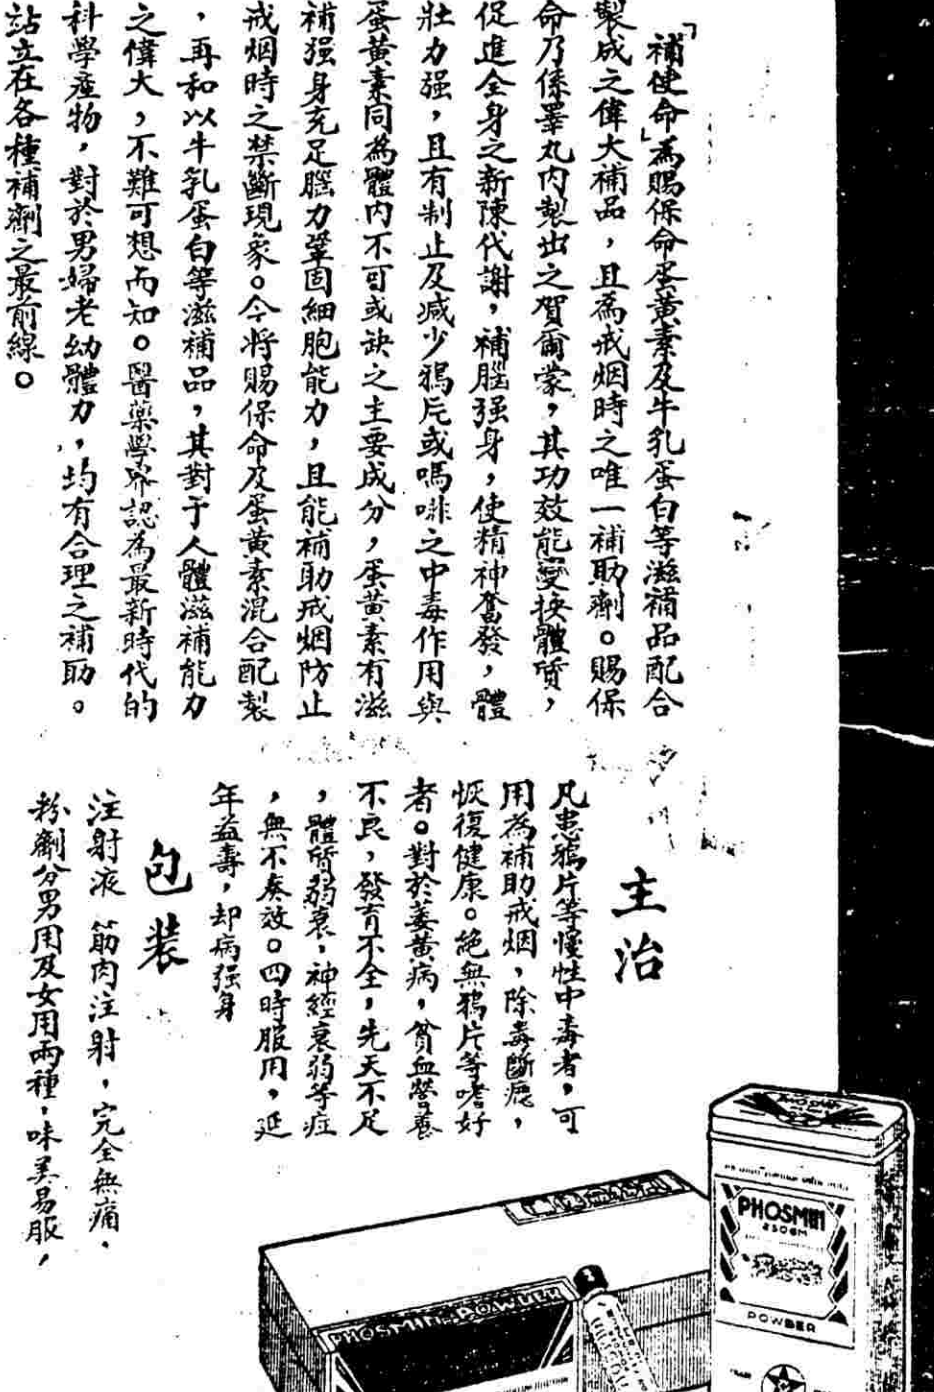 「補使命」為賜保命蛋黃素及牛乳蛋白等滋補品配合
製成之偉大補品，且為戒烟時之唯一補助劑。賜保
命乃係睪丸內製出之賀爾蒙，其功效能變換體質，
促進全身之新陳代謝，補腦强身，使精神奮發，體
壯力强，且有制止及減少鴉片或嗎啡之中毒作用與
蛋黃素同為體內不可或缺之主要成分，蛋黃素有滋
補强身充足腦力鞏固細胞能力，且能補助戒烟防止
戒烟時之禁斷現象。今將賜保命及蛋黃素混合配製
，再和以牛乳蛋白等滋補品，其對于人體滋補能力
之偉大，不難可想而知。醫藥學界認為最新時代的
科學產物，對於男婦老幼體力，均有合理之補助。
站立在各種補劑之最前線。
主治
凡患鴉片等慢性中毒者，可
用為補助戒烟，除毒斷癮，
恢復健康。絕無鴉片等嗜好
者。對於萎黃病，貧血營養
不良，發育不全，先天不足
，體質弱衰，神經衰弱等症
，無不奏效。四時服用，延
年益壽，却病强身
包装
注射液 筋肉注射，完全無痛，
粉劑分男用及女用兩種，味美易服，
PHOSMIN
250GM
POWDER
PHOSMIN POWDER